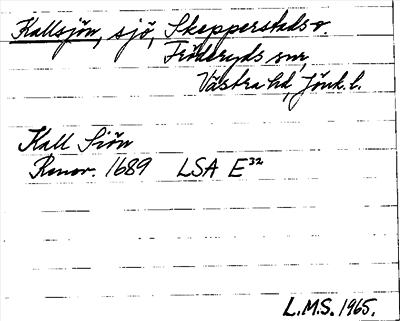 Kallsjön, sjö, Skepperstads o.
Fröderyds snr,
Västra hd, Jönk. l.
Kall Siön
Renov. 1689 LSA E³²
L.M.S. 1965.